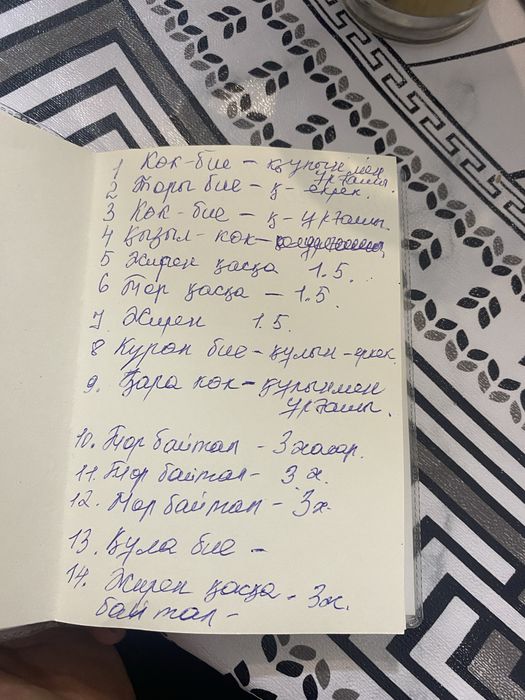 1 Көк-бие – құлынмен
ұрғашы.
2 Торы бие – қ- еркек.
3 Көк - бие – қ- ұрғашы.
4 Қызыл- көк-
5 Жирен қасқа 1.5.
6 Тор қасқа – 1.5.
7 Жирен 1.5.
8 Құрон бие – құлын-еркек.
9. Қара көк – құлынмен
ұрғашы.
10. Тор байтал – 3 жасар.
11. Тор байтал – 3 ж.
12. Тор байтал – 3ж
13. Құла бие –
14. Жирен қасқа - 3ж.
байтал –